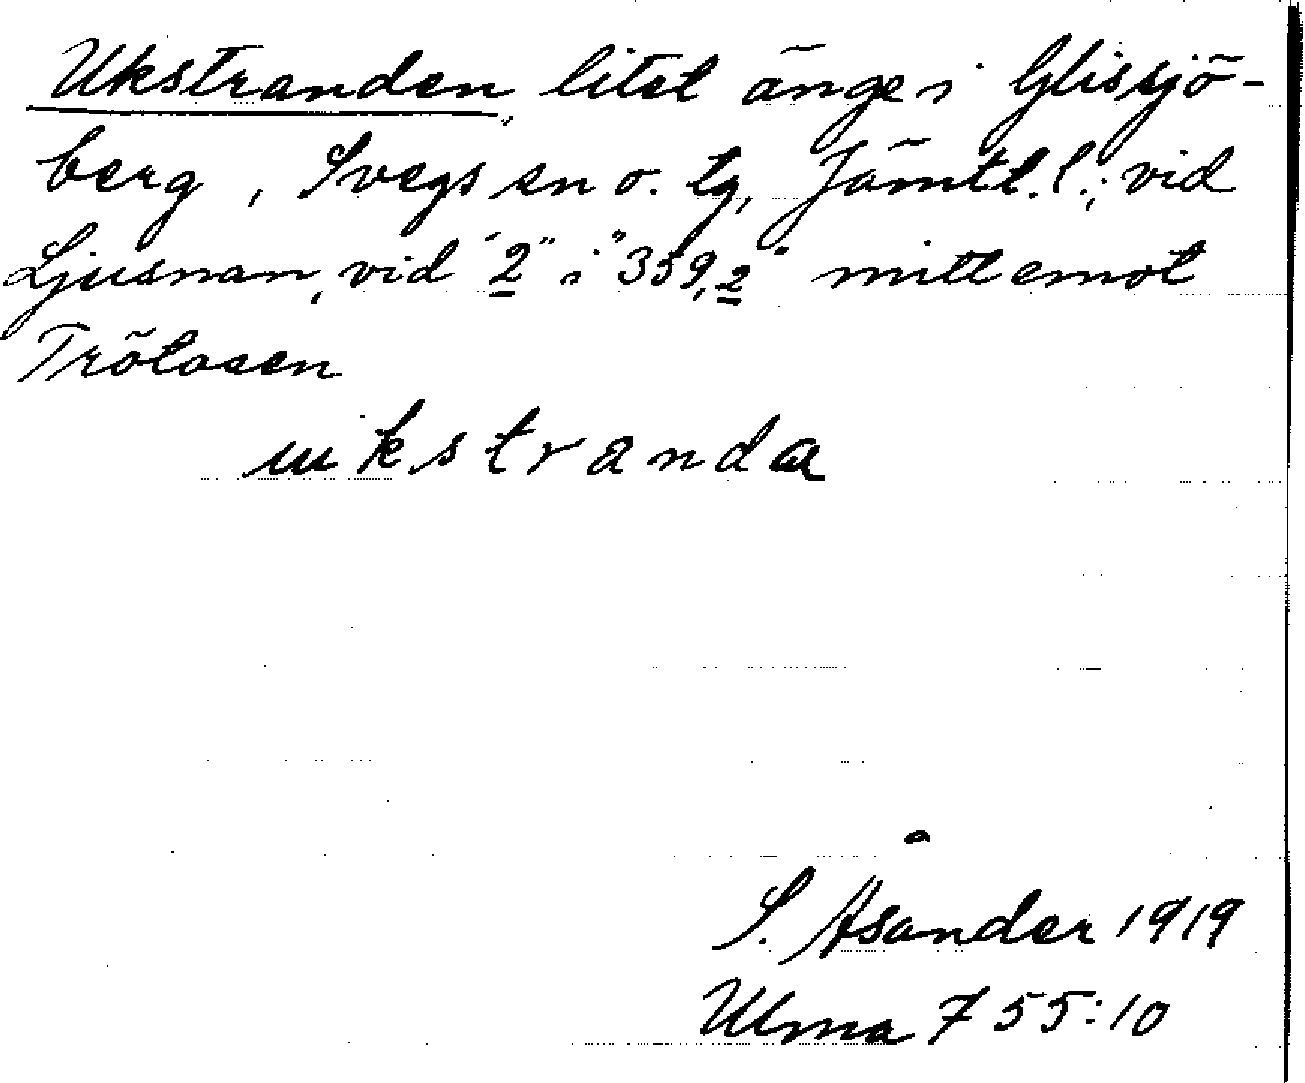 Ukstranden, litet änge i Glissjö-
berg, Svegs sn o. tg, Jämtl. l.; vid
Ljusnan, vid "2" i "359,2" mitt emot
Trötosen
ukstranda
S. Åsander 1919
Ulma 755:10